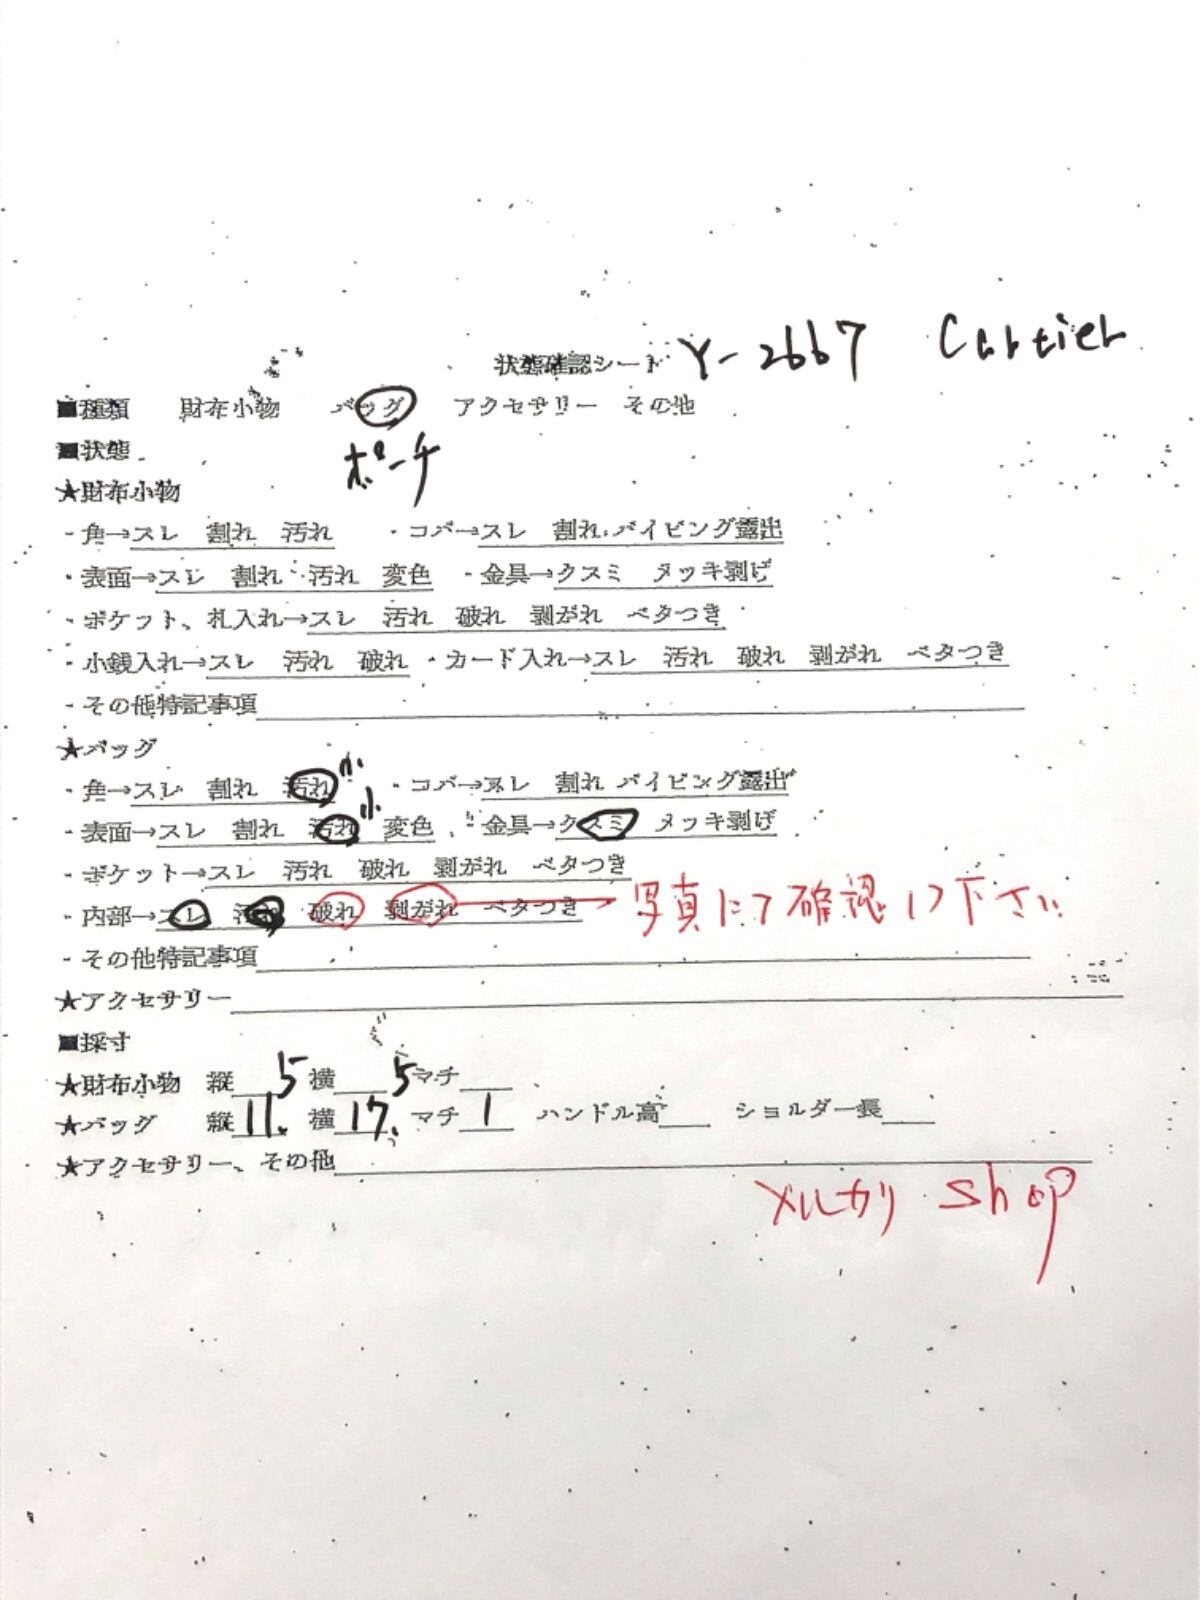 状態確認シート Y-2667 Cartier
■種類 財布小物 バッグ アクセサリー その他
■状態 ポーチ
★財布小物
・角→スレ 割れ 汚れ ・コバ→スレ 割れ パイピング露出
・表面→スレ 割れ 汚れ 変色 ・金具→クスミ メッキ剥げ
・ポケット、札入れ→スレ 汚れ 破れ 剥がれ ベタつき
・小銭入れ→スレ 汚れ 破れ ・カード入れ→スレ 汚れ 破れ 剥がれ ベタつき
・その他特記事項
★バッグ
・角→スレ 割れ 汚れ 小 ・コバ→スレ 割れ パイピング露出
・表面→スレ 割れ 汚れ 小 変色 ・金具→クスミ メッキ剥げ
・ポケット→スレ 汚れ 破れ 剥がれ ベタつき
・内部→スレ 汚れ 破れ 剥がれ ベタつき 写真にて確認して下さい
・その他特記事項
★アクセサリー
■採寸
★財布小物 縦 5 横 5 マチ
★バッグ 縦 11. 横 17. マチ 1 ハンドル高 ショルダー長
★アクセサリー、その他
メルカリ shop